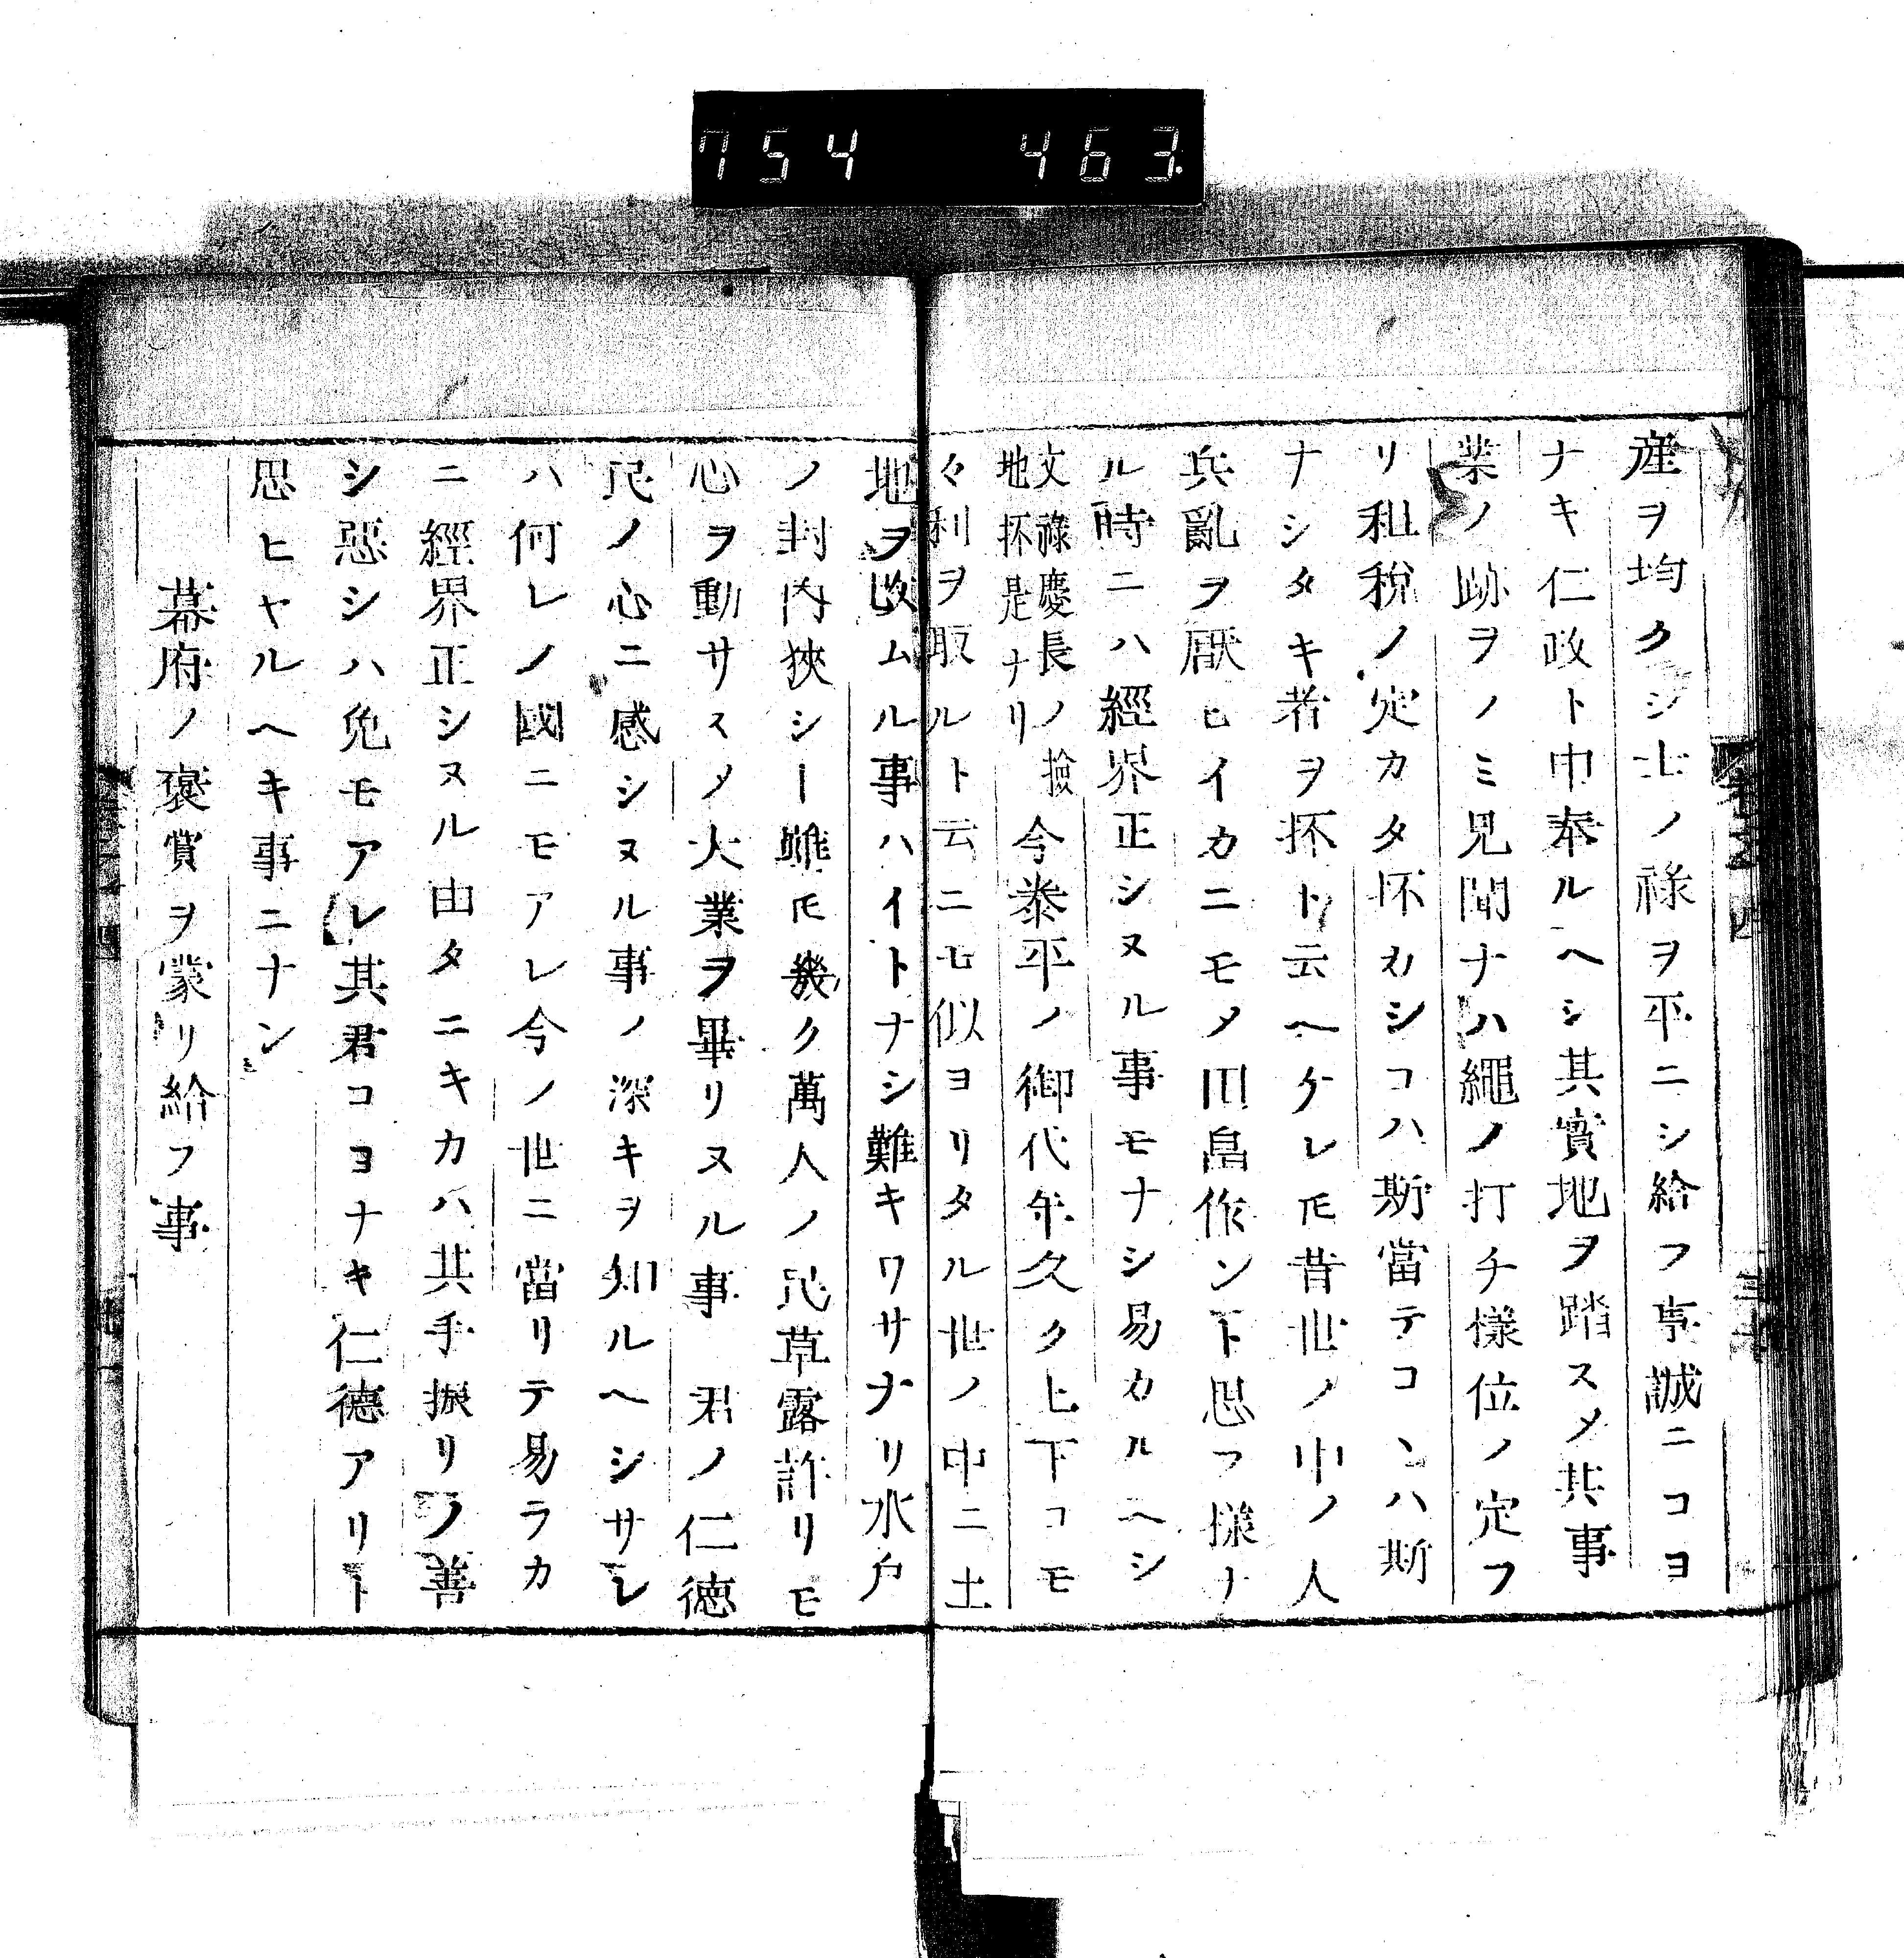 754 463
産ヲ均クシ士ノ祿ヲ平ニシ給フ事誠ニコヨ
ナキ仁政ト申奉ルヘシ其實地ヲ踏スメ其事
業ノ跡ヲノミ見聞ナハ繩ノ打チ樣位ノ定フ
リ租税ノ定カタ抔カシコハ斯當テコヽハ斯
ナシタキ者ヲ抔ト云ヘケレ𪜈昔世ノ中ノ人
兵亂ヲ厭ヒイカニモメ田畠作ント思フ樣ナ
ル時ニハ經界正シヌル事モナシ易カルヘシ
文祿慶長ノ撿
地抔是ナリ
今泰平ノ御代年久ク上下コモ
々利ヲ取ルト云ニモ似ヨリタル世ノ中ニ土
地ヲ改ムル事ハイトナシ難キワサナリ水戸
ノ封内狹シー雖𪜈幾ク萬人ノ民草露許リモ
心ヲ動サスメ大業ヲ畢リヌル事 君ノ仁德
民ノ心ニ感シヌル事ノ深キヲ知ルヘシサレ
ハ何レノ國ニモアレ今ノ世ニ當リテ易ラカ
ニ經界正シヌル由タニキカハ其手振リノ善
シ惡シハ兔モアレ其君コヨナキ仁德アリト
思ヒヤルヘキ事ニナン
幕府ノ褒賞ヲ蒙リ給フ事